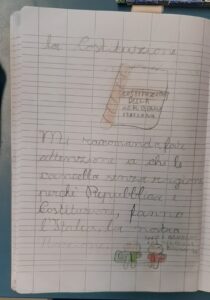 la Costituzione
COSTITUZIONE
DELLA
REPUBBLICA
ITALIANA
Mi raccomando fate
attenzione a chi le
cancella senza ragione
perché Repubblica e
Costituzione, fanno
l'Italia, la nostra